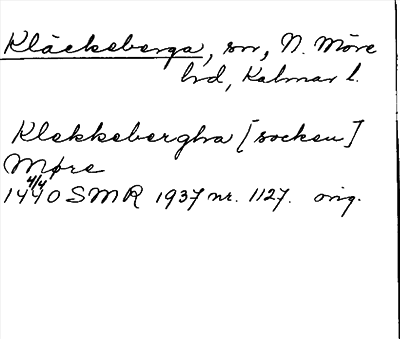 Kläckeberga, sn, N. Möre
hd, Kalmar l.
Klekkebergha [socken]
Møre
1440 4/4 SMR 1937 nr. 1127. orig.